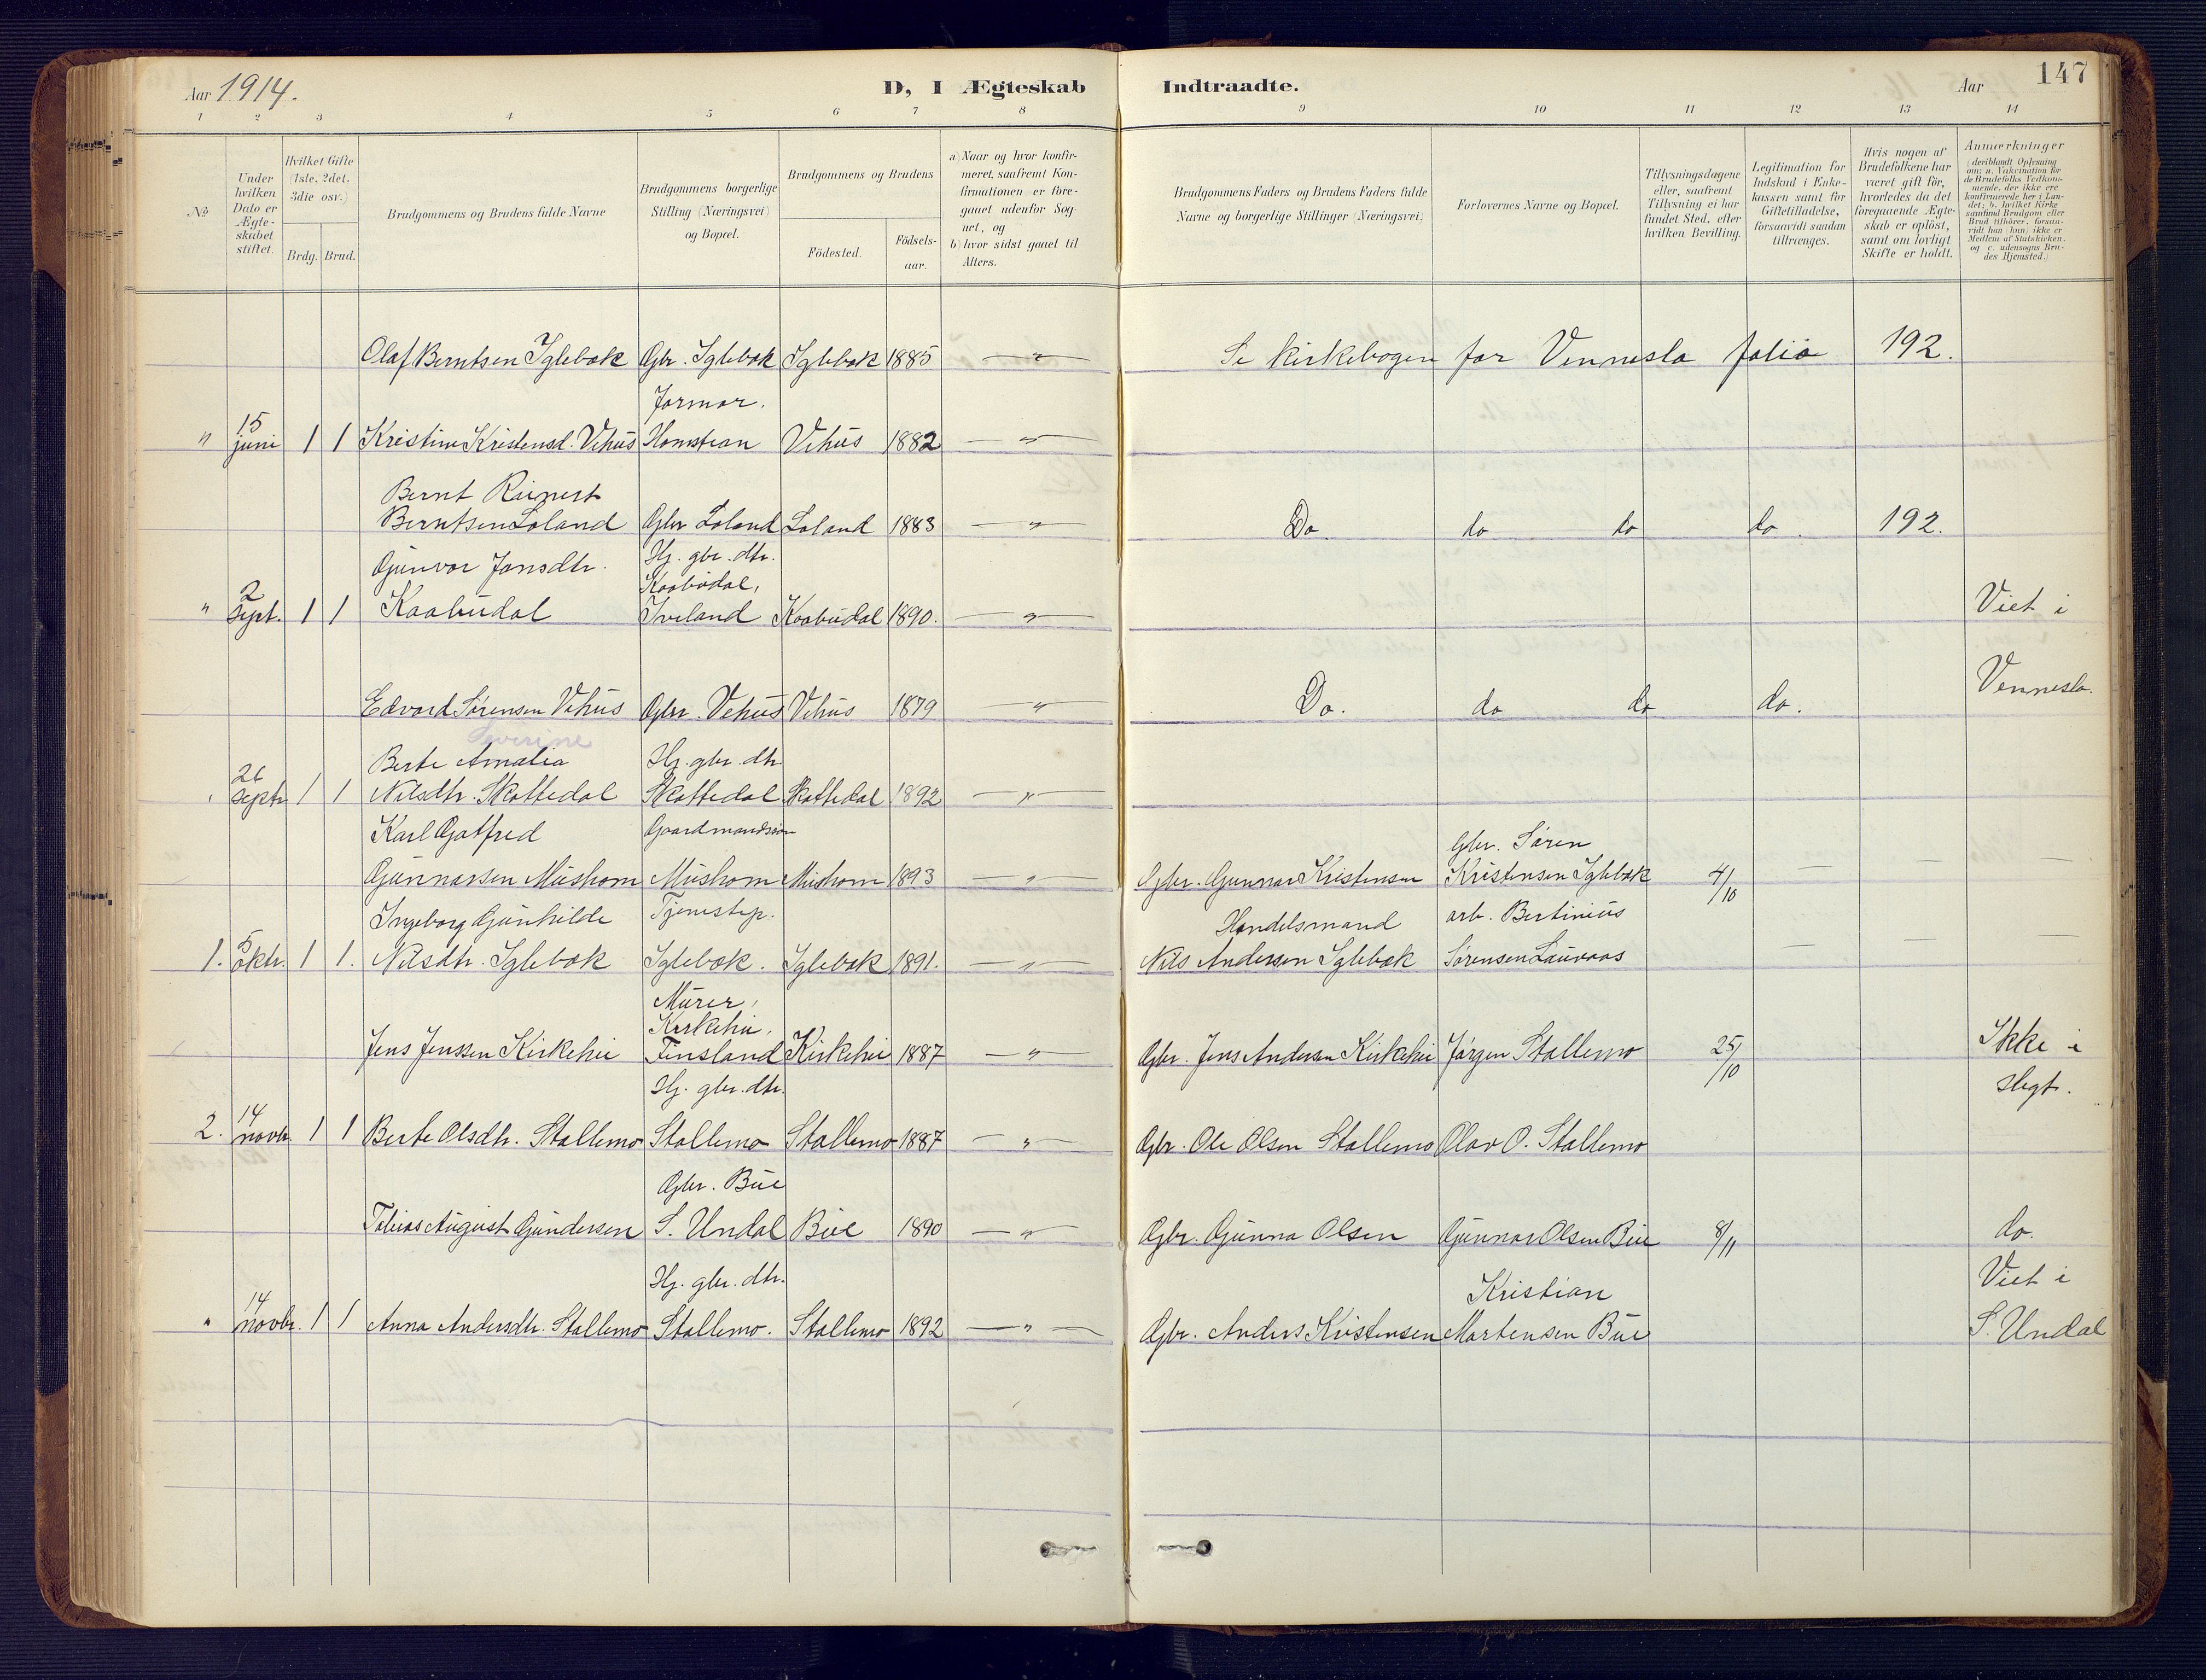 Aar 1914.
D, I Ægteskab Indtraadte.
Aar 147
1 2 3 4 5 6 7 8 9 10 11 12 13 14
No
Under hvilken Dato er Ægteskabet stiftet.
Hvilket Gifte (1ste, 2det, 3die osv.)
Brdg. Brud.
Brudgommens og Brudens fulde Navne
Brudgommens borgerlige Stilling (Næringsvei) og Bopæl.
Brudgommens og Brudens
Födested.
Födsels-aar.
a) Naar og hvor konfirmeret, saafremt Konfirmationen er foregaaet udenfor Sognet, og
b) hvor sidst gaaet til Alters.
Brudgommens Faders og Brudens Faders fulde Navne og borgerlige Stillinger (Næringsvei)
Forlovernes Navne og Bopæl.
Tillysningsdagene eller, saafremt Tillysning ei har fundet Sted, efter hvilken Bevilling.
Legitimation for Indskud i Enkekassen samt for Giftetilladelse, forsaavidt saadan tiltrænges.
Hvis nogen af Brudefolkene har været gift för, hvorledes da det foregaaende Ægteskab er oplöst, samt om lovligt Skifte er holdt.
Anmærkninger
(deriblandt Oplysning om: a. Vakcination for de Brudefolks Vedkommende, der ikke ere konfirmerede her i Landet; b. hvilket Kirkesamfund Brudgom eller Brud tilhörer, forsaavidt han (hun) ikke er Medlem af Statskirken, og c. udensogns Brudes Hjemsted.)
Olaf Berntsen Iglebæk Gbr. Iglebæk Iglebæk 1885 — " — Se kirkebogen for Vennesla folio 192.
Farmor.
" 15 juni 1 1 Kristine Kristensd. Vehus Homstean Vehus 1882 — " —
Bernt Reinert
Berntsen Loland Gbr Loland Loland 1883 — " — Do. do do do. 192.
Gunvor Jonsdtr. Hj. gbr. dtr.
Kaabudal,
" 2 Sept. 1 1 Kaabudal Iveland Kaabudal 1890. — " — Viet i
Edvard Sörensen Vehus Gbr. Vehus Vehus 1879 — " — Do. do do do. Vennesla.
Severine
Berte Amalia Hj. gbr. dtr.
26 Septr 1 1 Nilsdtr. Skottedal Skottedal Skottedal 1892 — " —
Karl Gotfred Gaardmandssön Gbr. Sören
Gunnarsen Mushom Mushom Mushom 1893 — " — Gbr. Gunnar Kristensen Kristensen Iglebæk 4/10 — — —
Ingeborg Gunhilde Tjenestep. Handelsmand arb. Bertinius
1. 5 oktr. 1 1. Nilsdtr. Iglebæk Iglebæk. Iglebæk 1891. — " — Nils Andersen Iglebæk Sörensen Lauvaas — — —
Murer,
Kirkehei,
Jens Jenssen Kirkehei Finsland Kirkehei 1887 — " — Gbr. Jens Andersen Kirkehei Jörgen Stallemo 25/10 Ikke i
Hj. gbr. dtr. slegt.
2. 14 novbr. 1 1 Berte Olsdtr. Stallemo Stallemo Stallemo 1887 — " — Gbr. Ole Olsen Stallemo Olav O. Stallemo
Gbr. Bue
Tobias August Gundersen S. Undal Bue 1890 — " — Gbr. Gunna Olsen Gunnar Olsen Bue 8/11 do.
Hj. gbr. dtr. Kristian Viet i
" 14 novbr. 1 1 Anna Andersdtr. Stallemo Stallemo. Stallemo 1892 — " — Gbr. Anders Kristensen Martensen Bue S. Undal